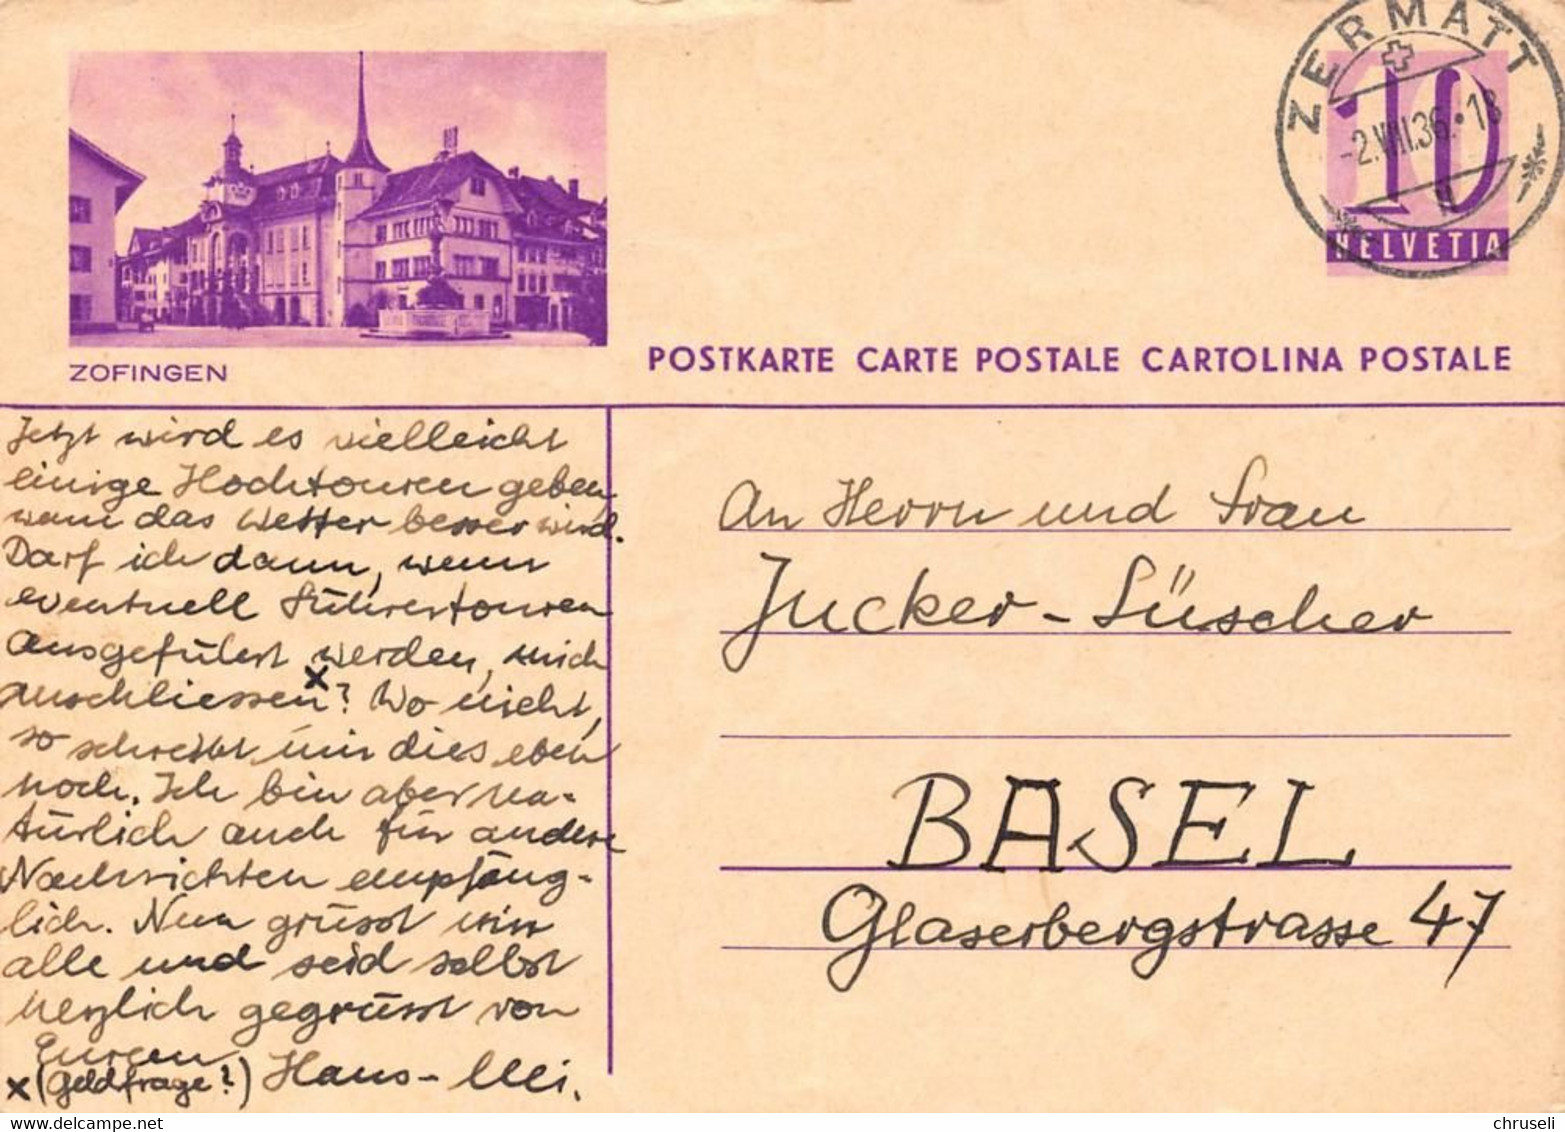 ZERMATT
-2.VIII.36.-18
10
HELVETIA
ZOFINGEN
POSTKARTE CARTE POSTALE CARTOLINA POSTALE
Jetzt wird es vielleicht
einige Hochtouren geben,
wenn das Wetter besser wird.
Darf ich dann, wenn
eventuell Führertouren
ausgeführt werden, mich
anschliessen x? Wo nicht,
so schreibt mir dies eben
noch. Ich bin aber na-
türlich auch für andere
Nachrichten empfäng-
lich. Nun grüsst mir
alle und seid selbst
herzlich gegrüsst von
Eurem
Hans-Uli.
x (Geldfrage?)
An Herrn und Frau
Jucker-Lüscher
BASEL
Glaserbergstrasse 47
chruseli